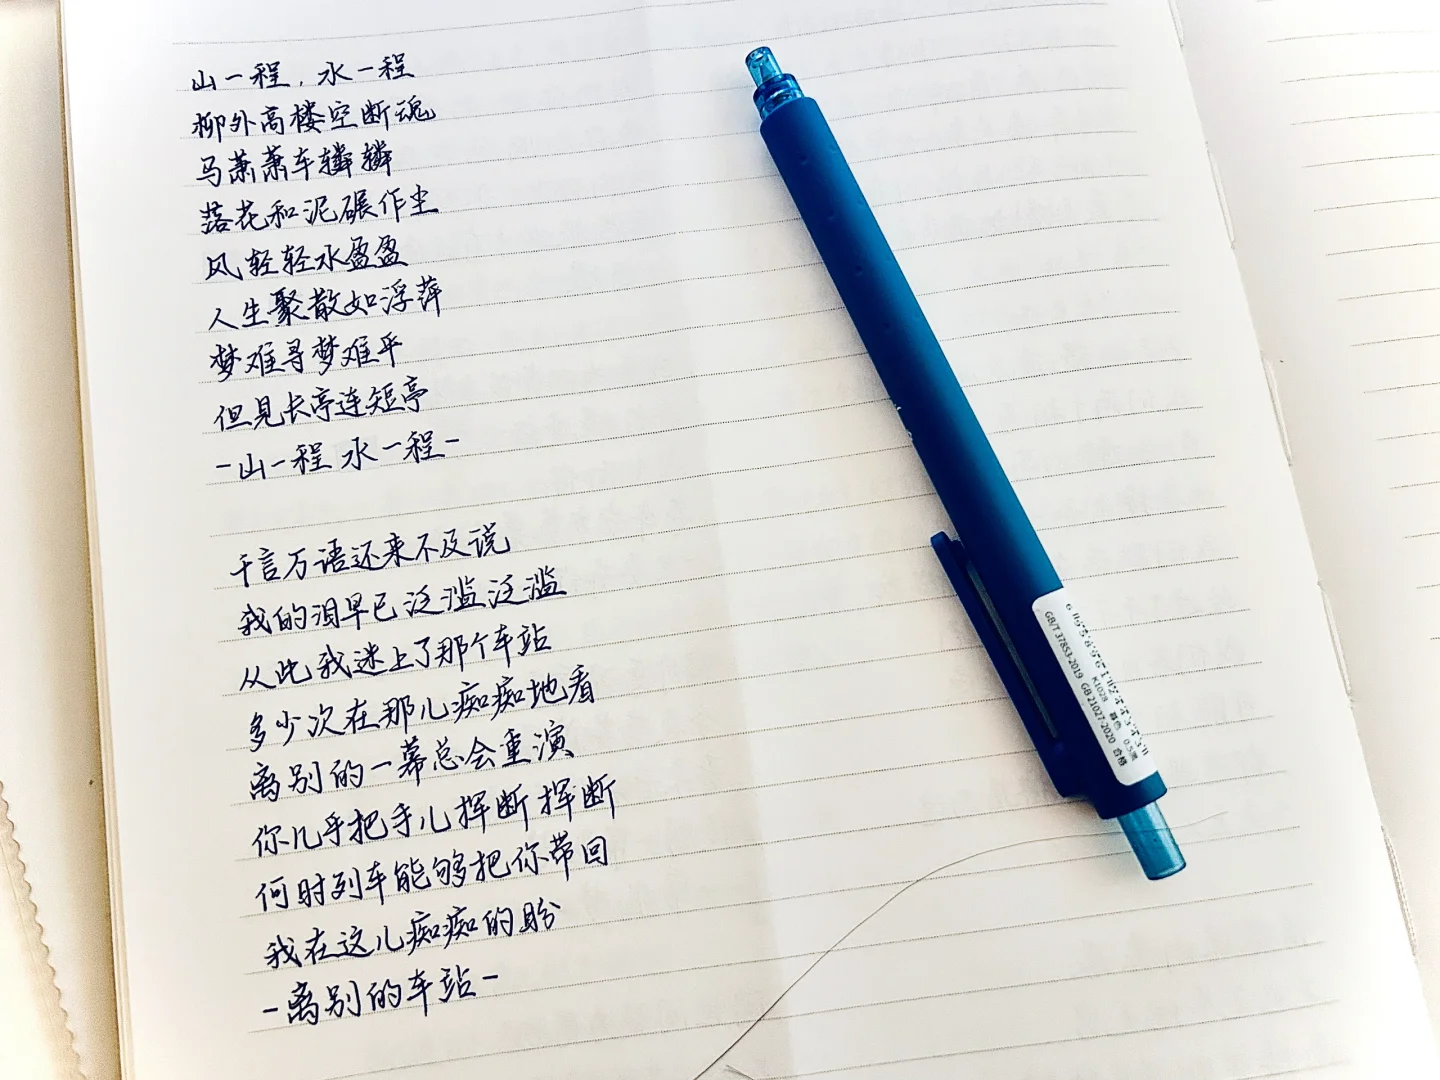 山一程，水一程
柳外高楼空断魂
马萧萧车辚辚
落花和泥碾作尘
风轻轻水盈盈
人生聚散如浮萍
梦难寻梦难平
但见长亭连短亭
-山一程 水一程-
千言万语还来不及说
我的泪早已泛滥泛滥
从此我迷上了那个车站
多少次在那儿痴痴地看
离别的一幕总会重演
你几乎把手儿挥断挥断
何时列车能够把你带回
我在这儿痴痴的盼
-离别的车站-
GB/T 37853-2019 GB 21027-2020 合格